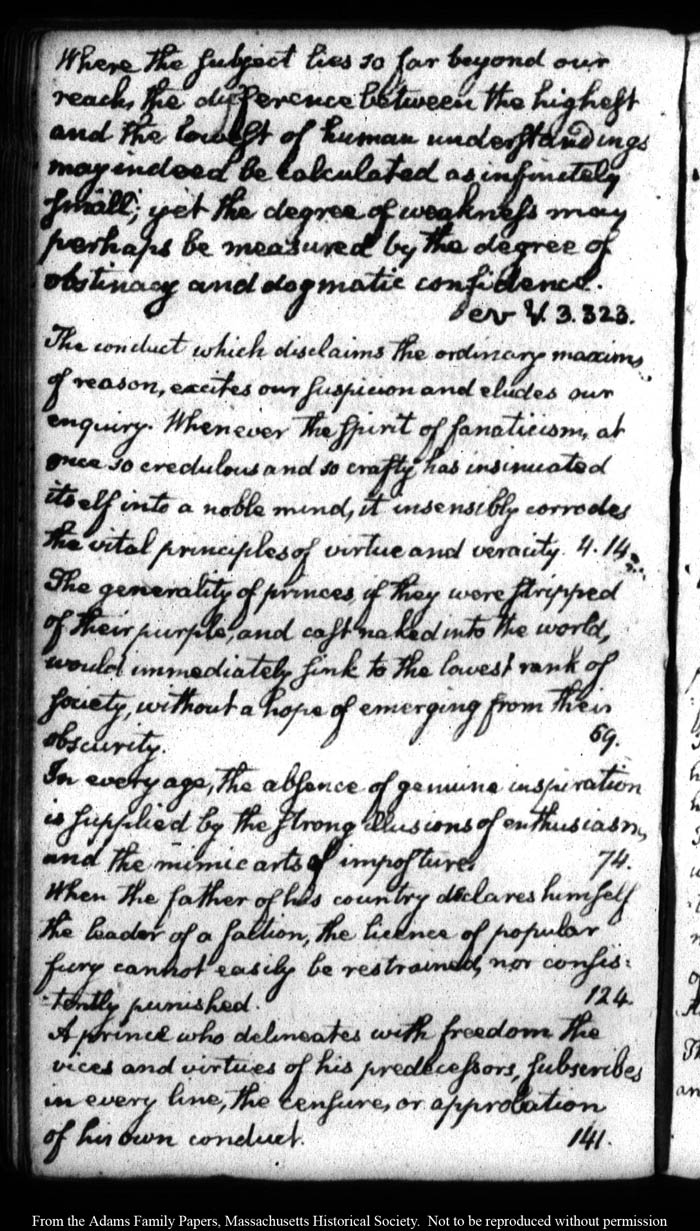 Where the subject lies so far beyond our
reach, the difference between the highest
and the lowest of human understandings
may indeed be calculated as infinitely
small; yet the degree of weakness may
perhaps be measured by the degree of
obstinacy and dogmatic confidence.
V. 3. 323.
The conduct which disclaims the ordinary maxims
of reason, excites our suspicion and eludes our
enquiry. Whenever the spirit of fanaticism, at
once so credulous and so crafty has insinuated
itself into a noble mind, it insensibly corrodes
the vital principles of virtue and veracity. 4. 14.
The generality of princes, if they were stripped
of their purple, and cast naked into the world,
would immediately sink to the lowest rank of
society, without a hope of emerging from their
obscurity. 69.
In every age, the absence of genuine inspiration
is supplied by the strong illusions of enthusiasm,
and the mimic arts of imposture. 74.
When the father of his country declares himself
the leader of a faction, the licence of popular
fury cannot easily be restrained, nor consis:
:tently punished. 124.
A prince who delineates with freedom the
vices and virtues of his predecessors, subscribes
in every line, the censure, or approbation
of his own conduct. 141.
From the Adams Family Papers, Massachusetts Historical Society. Not to be reproduced without permission